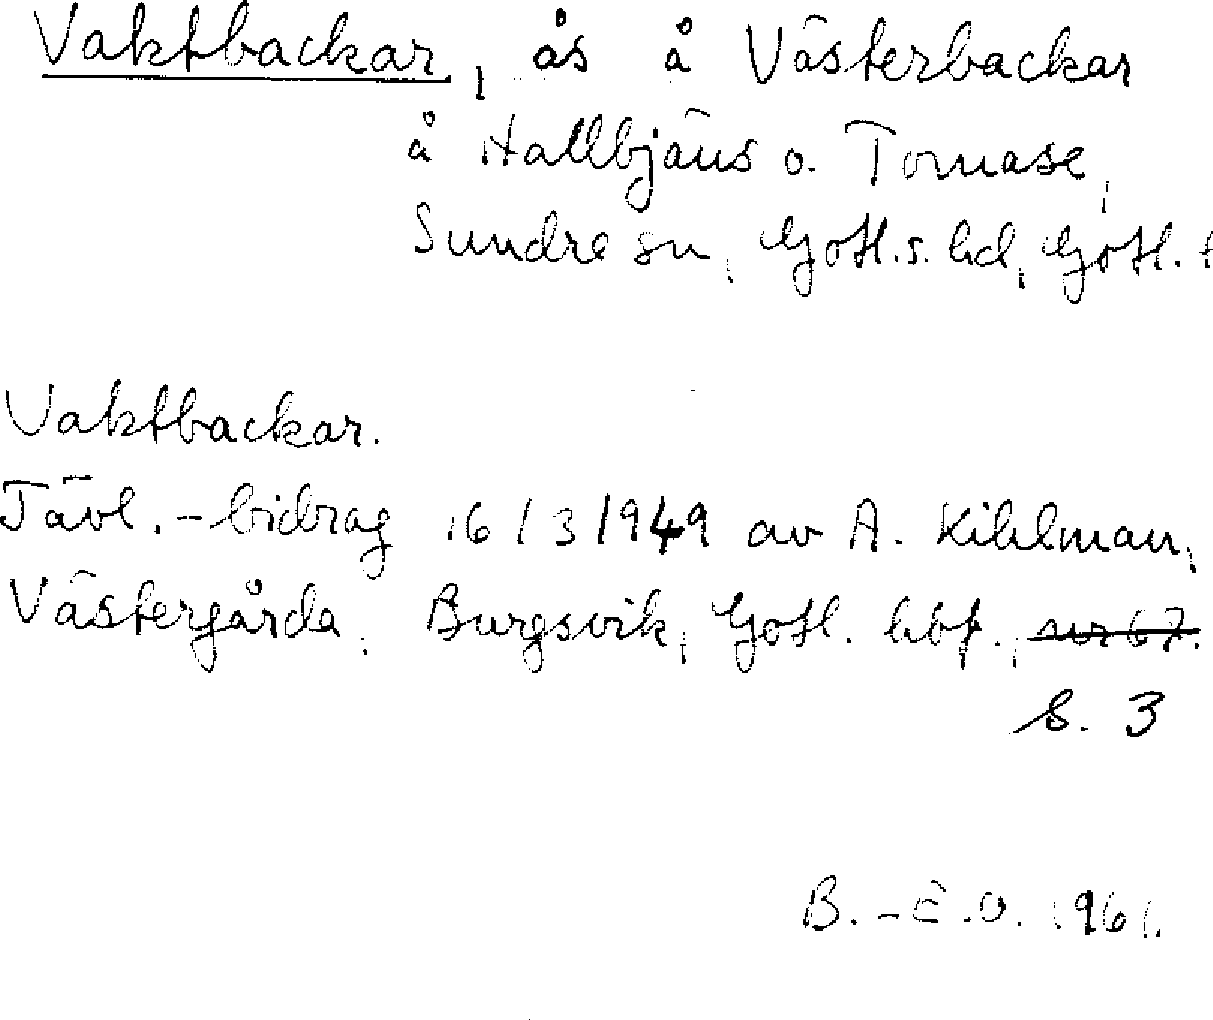 Vaktbackar, ås å Västerbackar
å Hallbjäns o. Tomase,
Sundre sn, Gotl.s. hd, Gotl. l
Vaktbackar.
Tävl.-bidrag 16/3 1949 av A. Kihlman,
Västergårda, Burgsvik, Gotl. hbf., nr 67.
s. 3
B.-E.O. 1961.